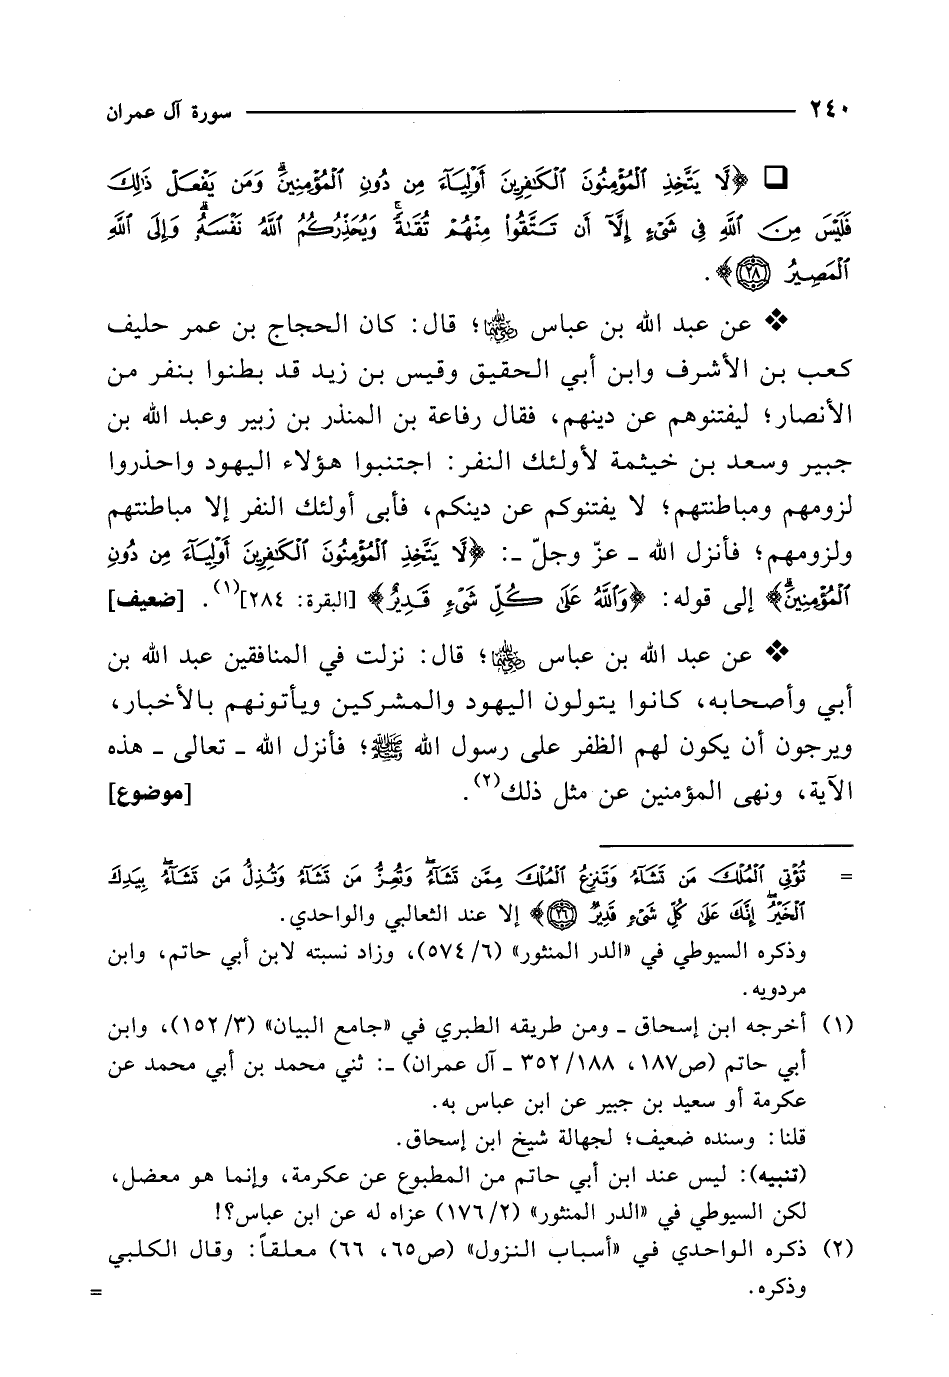 ٢٤٠ سورة آل عمران
❏ ﴿لَّا يَتَّخِذِ ٱلْمُؤْمِنُونَ ٱلْكَٰفِرِينَ أَوْلِيَآءَ مِن دُونِ ٱلْمُؤْمِنِينَۖ وَمَن يَفْعَلْ ذَٰلِكَ
فَلَيْسَ مِنَ ٱللَّهِ فِى شَىْءٍ إِلَّآ أَن تَتَّقُوا۟ مِنْهُمْ تُقَىٰةًۗ وَيُحَذِّرُكُمُ ٱللَّهُ نَفْسَهُۥۗ وَإِلَى ٱللَّهِ
ٱلْمَصِيرُ ۝٢٨﴾.
❖ عن عبد الله بن عباس ﵄؛ قال: كان الحجاج بن عمر حليف
كعب بن الأشرف وابن أبي الحقيق وقيس بن زيد قد بطنوا بنفر من
الأنصار؛ ليفتنوهم عن دينهم، فقال رفاعة بن المنذر بن زبير وعبد الله بن
جبير وسعد بن خيثمة لأولئك النفر: اجتنبوا هؤلاء اليهود واحذروا
لزومهم ومباطنتهم؛ لا يفتنوكم عن دينكم، فأبى أولئك النفر إلا مباطنتهم
ولزومهم؛ فأنزل الله ـ عزّ وجلّ ـ: ﴿لَّا يَتَّخِذِ ٱلْمُؤْمِنُونَ ٱلْكَٰفِرِينَ أَوْلِيَآءَ مِن دُونِ
ٱلْمُؤْمِنِينَۖ﴾ إلى قوله: ﴿وَٱللَّهُ عَلَىٰ كُلِّ شَىْءٍ قَدِيرٌ﴾ [البقرة: ٢٨٤](١). [ضعيف]
❖ عن عبد الله بن عباس ﵄؛ قال: نزلت في المنافقين عبد الله بن
أبي وأصحابه، كانوا يتولون اليهود والمشركين ويأتونهم بالأخبار،
ويرجون أن يكون لهم الظفر على رسول الله ﷺ؛ فأنزل الله ـ تعالى ـ هذه
الآية، ونهى المؤمنين عن مثل ذلك(٢). [موضوع]
= تُؤْتِى ٱلْمُلْكَ مَن تَشَآءُ وَتَنزِعُ ٱلْمُلْكَ مِمَّن تَشَآءُ وَتُعِزُّ مَن تَشَآءُ وَتُذِلُّ مَن تَشَآءُۖ بِيَدِكَ
ٱلْخَيْرُۖ إِنَّكَ عَلَىٰ كُلِّ شَىْءٍ قَدِيرٌ ۝٢٦﴾ إلا عند الثعالبي والواحدي.
وذكره السيوطي في «الدر المنثور» (٦/ ٥٧٤)، وزاد نسبته لابن أبي حاتم، وابن
مردويه.
(١) أخرجه ابن إسحاق ـ ومن طريقه الطبري في «جامع البيان» (٣/ ١٥٢)، وابن
أبي حاتم (ص١٨٧، ١٨٨/ ٣٥٢ ـ آل عمران) ـ: ثني محمد بن أبي محمد عن
عكرمة أو سعيد بن جبير عن ابن عباس به.
قلنا: وسنده ضعيف؛ لجهالة شيخ ابن إسحاق.
(تنبيه): ليس عند ابن أبي حاتم من المطبوع عن عكرمة، وإنما هو معضل،
لكن السيوطي في «الدر المنثور» (٢/ ١٧٦) عزاه له عن ابن عباس؟!
(٢) ذكره الواحدي في «أسباب النزول» (ص٦٥، ٦٦) معلقاً: وقال الكلبي
وذكره. =